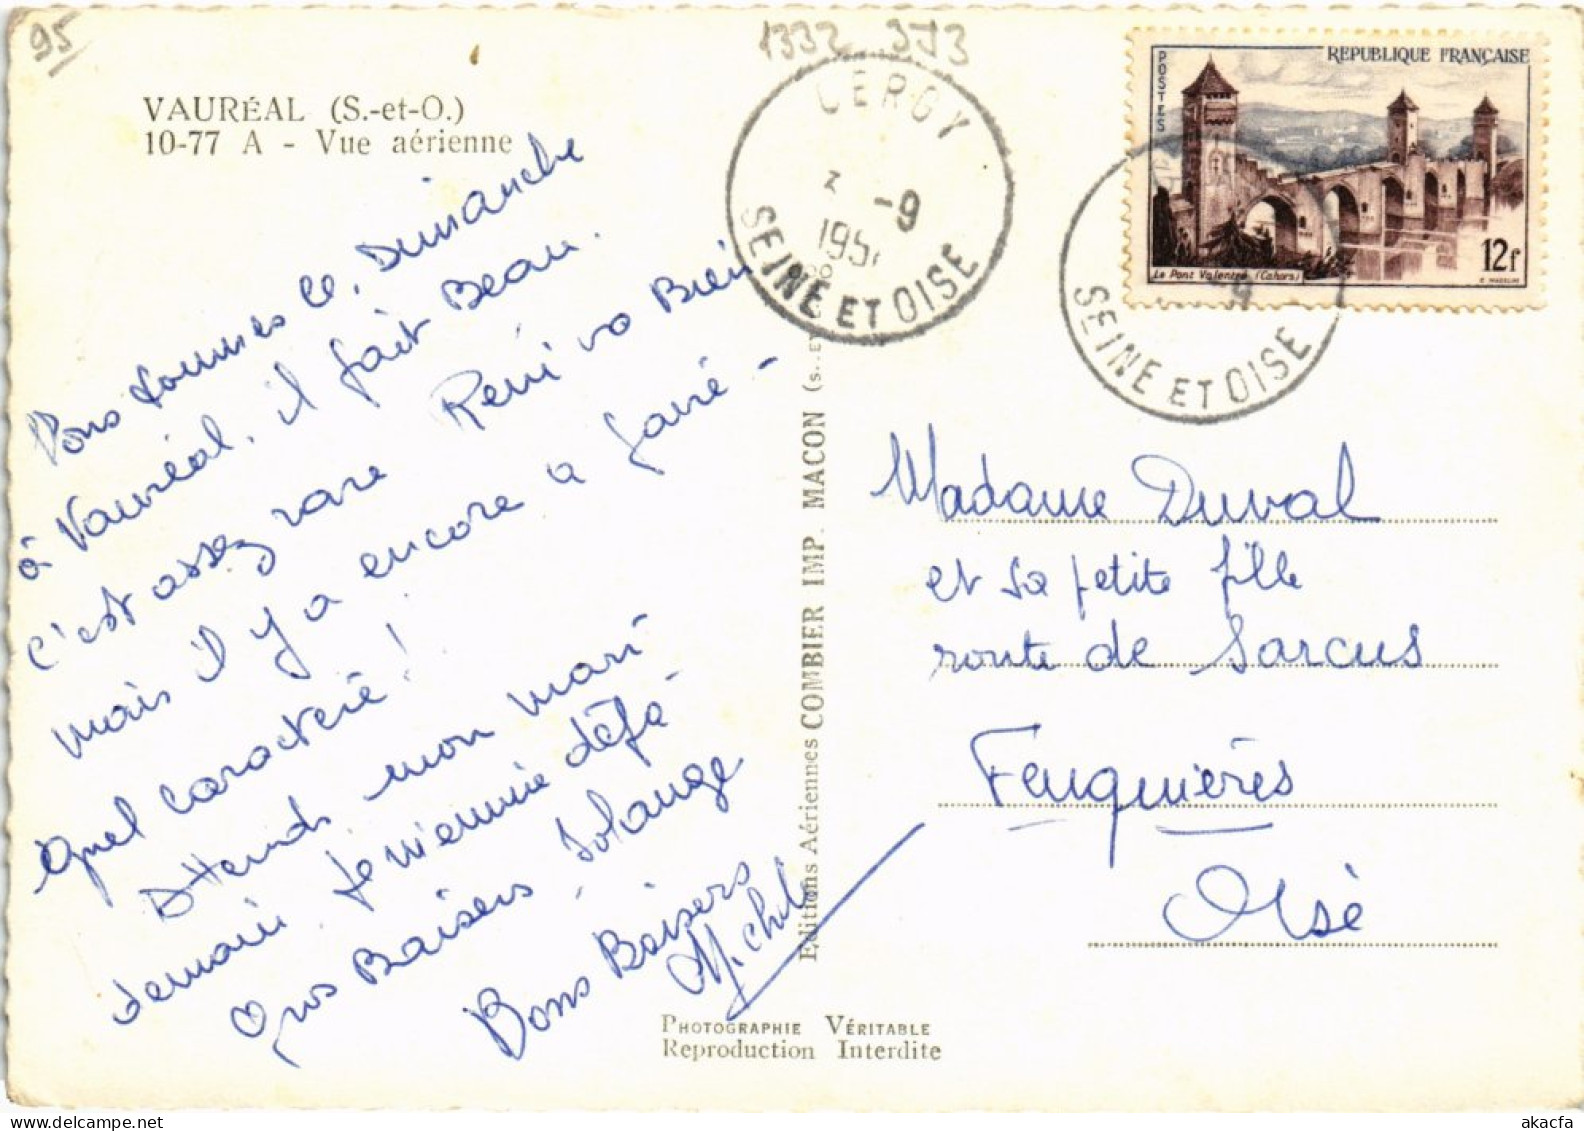 95
1332 3J3
VAURÉAL (S.-et-O.)
10-77 A - Vue aérienne
Nous sommes ce Dimanche
à Vauréal, il fait Beau.
c'est assez rare René va Bien
mais il y a encore a faire -
quel caractère !
Attends mon mari
demain je m'ennuie déjà -
Gros Baisers Solange
Bons Baisers
Michel
CERGY
-9
195
SEINE ET OISE
SEINE ET OISE
POSTES
REPUBLIQUE FRANÇAISE
12f
Le Pont Valentré (Cahors)
Editions Aériennes COMBIER IMP. MACON
Madame Duval
et sa petite fille
route de Sarcus
Feuquières
Oise
PHOTOGRAPHIE VÉRITABLE
Reproduction Interdite
akacfa
www.delcampe.net